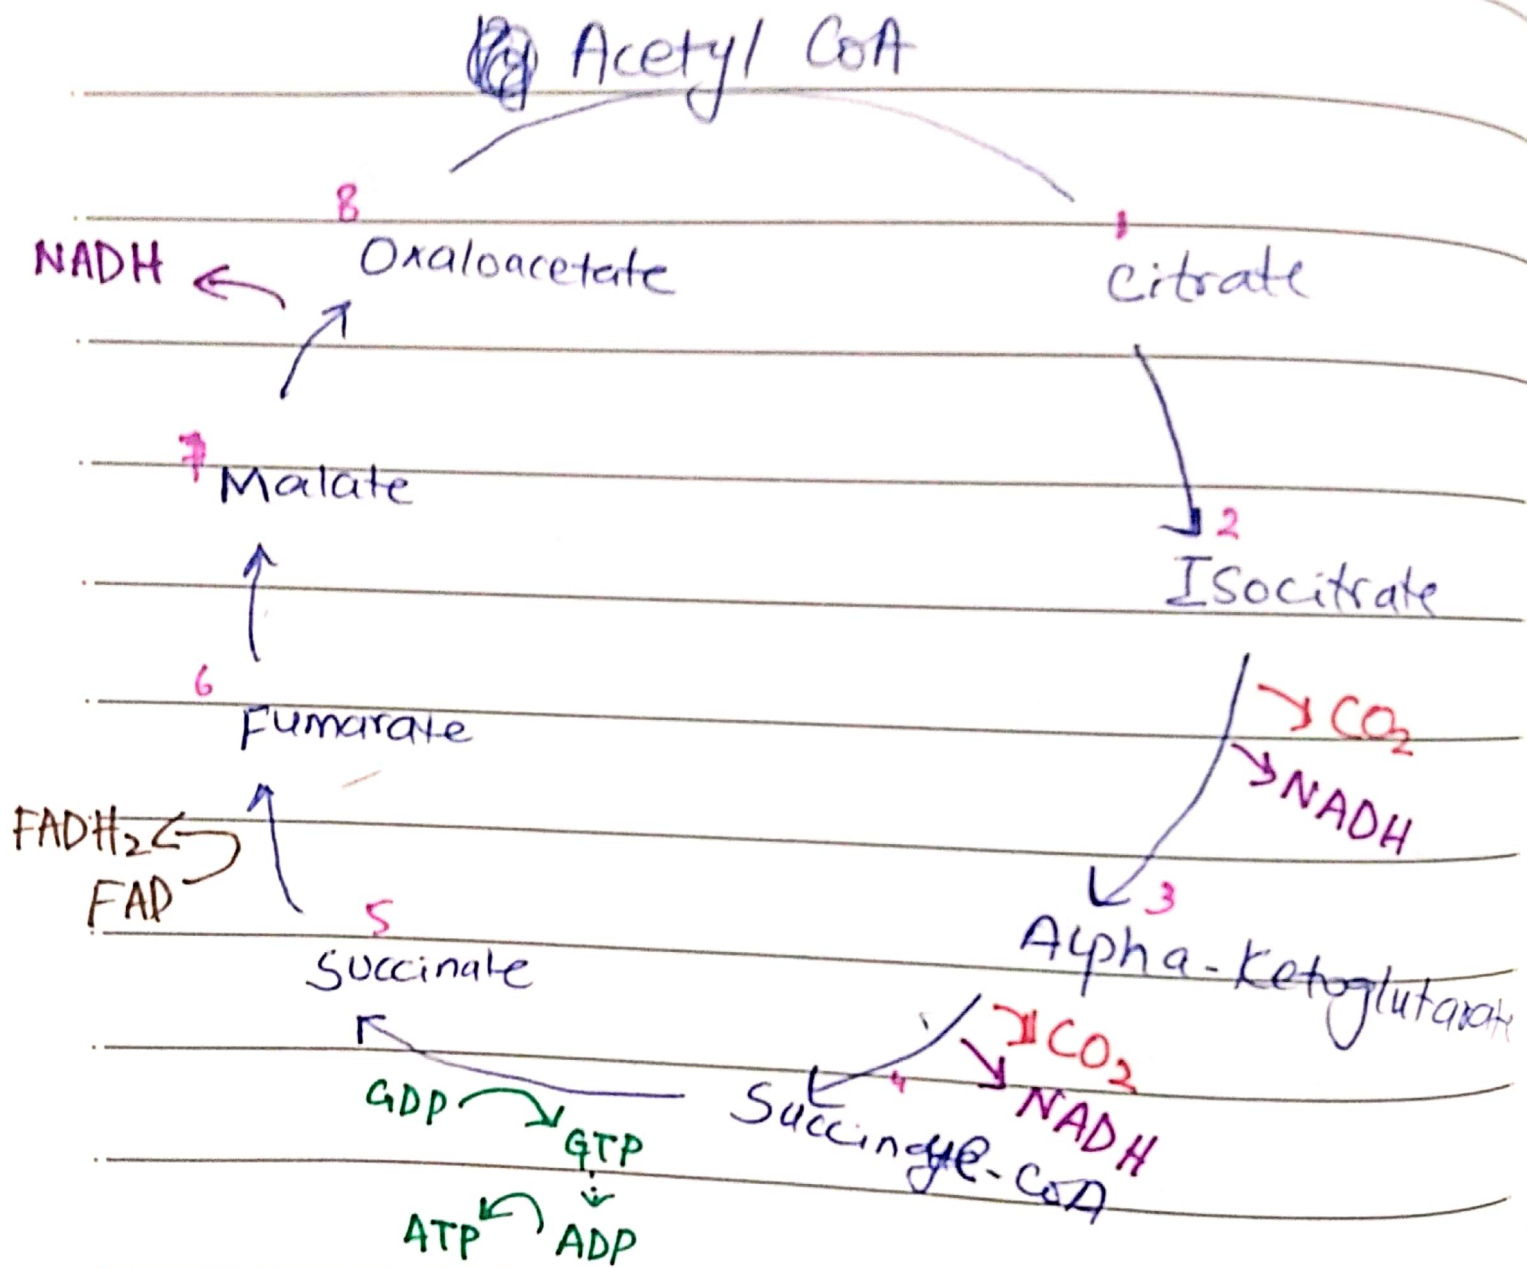 Acetyl CoA
8
Oxaloacetate
1
Citrate
NADH
7
Malate
2
Isocitrate
CO2
NADH
6
Fumarate
FADH2
FAD
3
Alpha-Ketoglutarate
5
Succinate
CO2
NADH
4
Succinyl-CoA
GDP
GTP
ATP
ADP